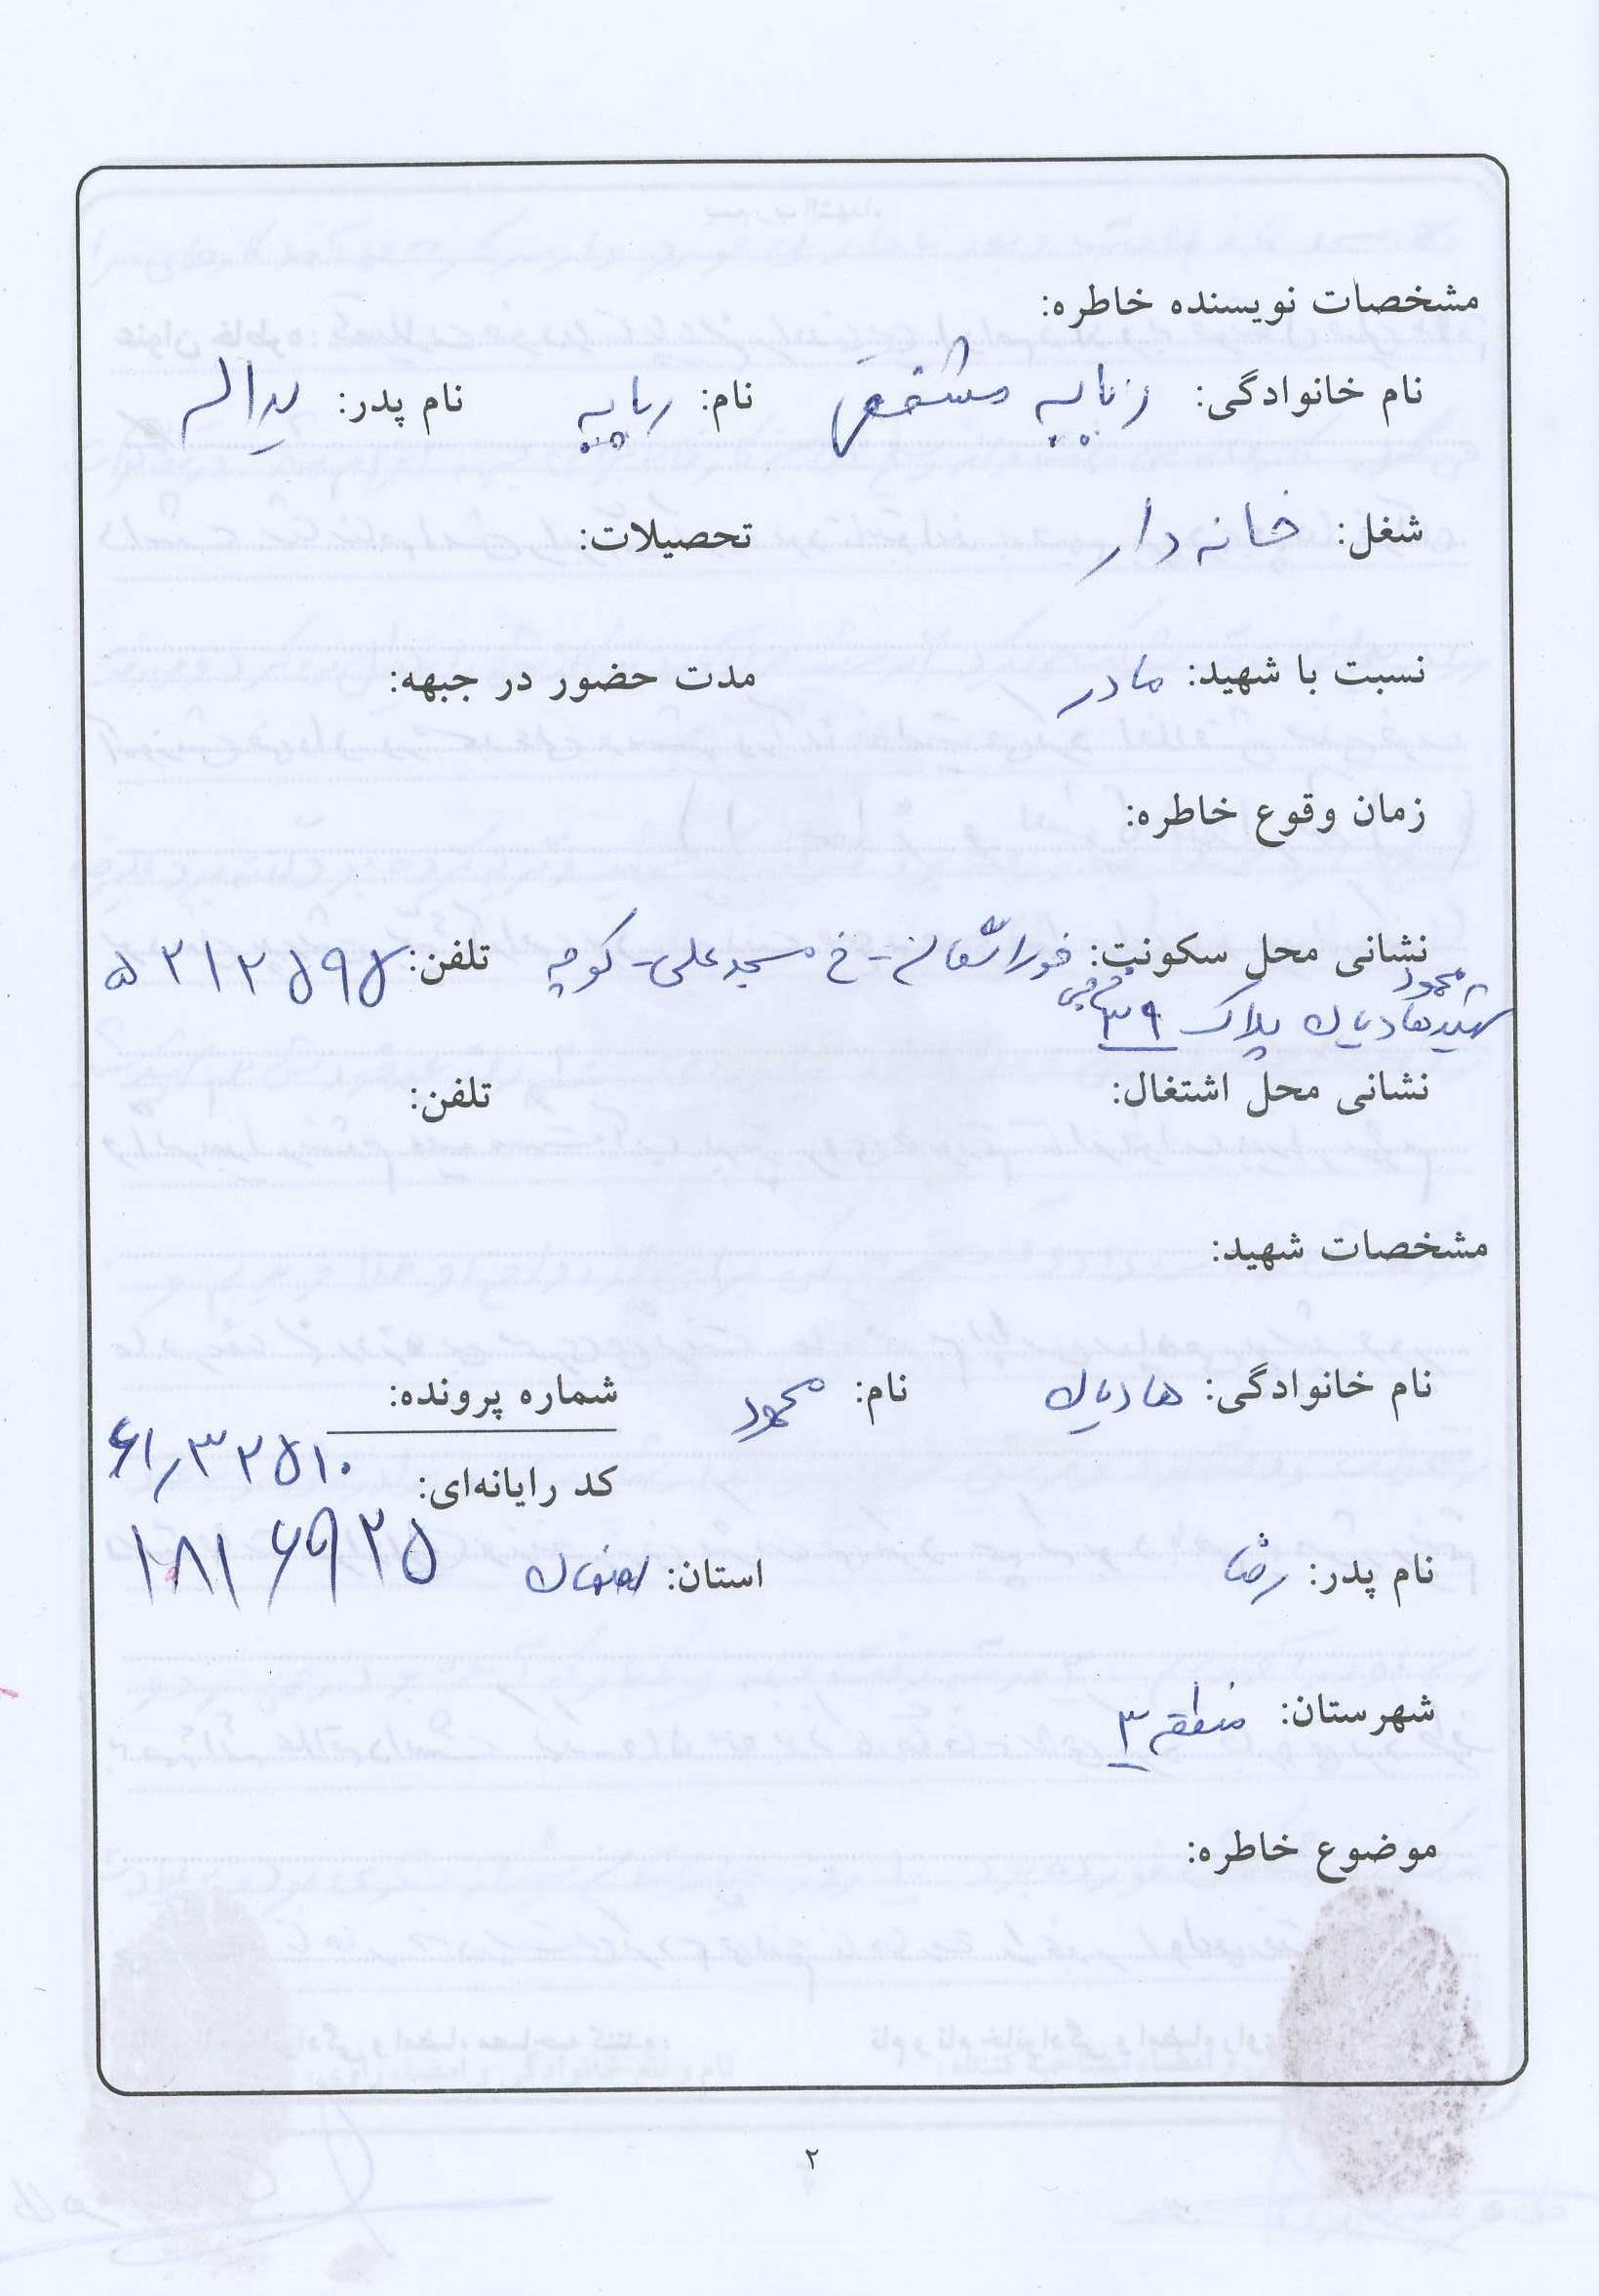 مشخصات نویسنده خاطره:
نام خانوادگی: نام: ربابه نام پدر: یداله
شغل: خانه دار تحصیلات:
نسبت با شهید: مادر مدت حضور در جبهه:
زمان وقوع خاطره:
نشانی محل سکونت: خوراسگان - خ مسجد علی - کوچه تلفن: ۵۲۱۲۵۹۵
شهید محمود هادیان پلاک ۳۹
نشانی محل اشتغال: تلفن:
مشخصات شهید:
نام خانوادگی: هادیان نام: محمود شماره پرونده: ۶۱/۳۲۵۱۰
کد رایانه‌ای: ۱۸۱۶۹۲۵
نام پدر: رضا استان: اصفهان
شهرستان: منطقه ۳
موضوع خاطره:
۲